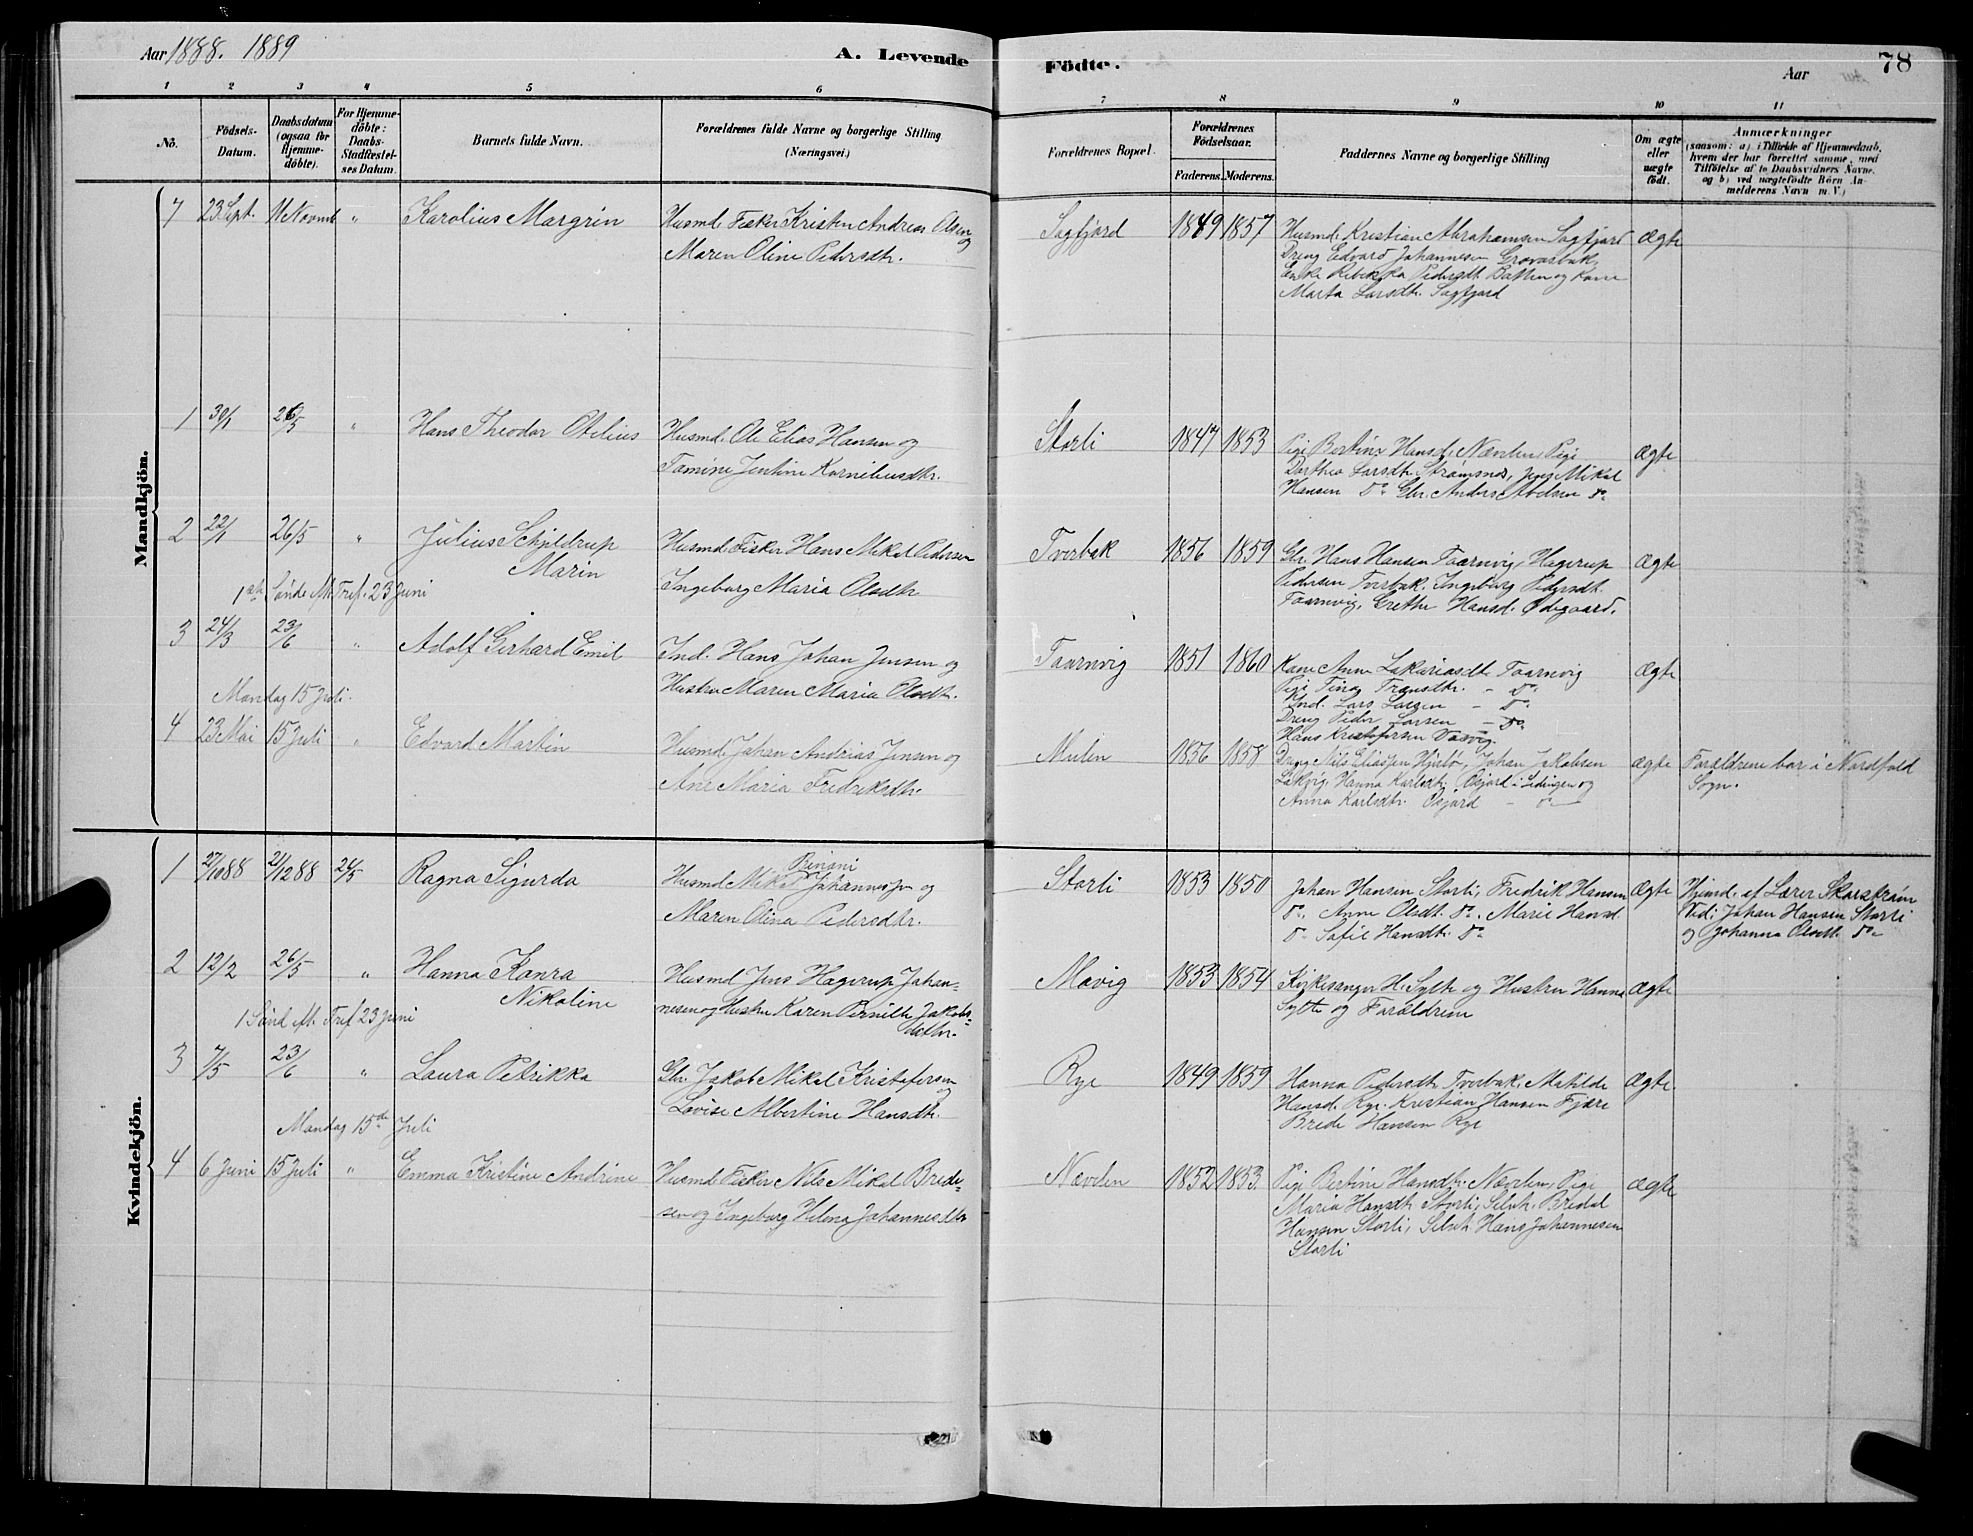 Aar 1888. 1889
A. Levende Födte.
Aar
78
1 2 3 4 5 6 7 8 9 10 11
No.
Födsels-Datum.
Daabsdatum (ogsaa for Hjemme-döbte).
For Hjemme-döbte: Daabs-Stadfæstel-ses Datum.
Barnets fulde Navn.
Forældrenes fulde Navne og borgerlige Stilling (Næringsvei.)
Forældrenes Bopæl.
Forældrenes Födselsaar.
Faderens. Moderens.
Faddernes Navne og borgerlige Stilling
Om ægte eller uægte födt.
Anmærkninger
(saasom: a) i Tilfælde af Hjemmedaab, hvem der har forrettet samme, med Tilföielse af to Daabsvidners Navne, og b) ved uægtefödte Börn An-melderens Navn m. V.)
Mandkjön.
7 23 Sept. 11 Novmb " Karolius Margrin
Husmd. Fisker Kristen Andreas Olsen og
Maren Oline Pedersdtr.
Sagfjord 1849 1857
Husmd. Kristian Abrahamsen Sagfjord
Dreng Edvard Johannesen
Enke Rebekka Pedersdt. og Kone
Marta Larsdtr. Sagfjord
Ægte
1 30/1 26/5 " Hans Theodor Otelius
Husmd. Ole Elias Hansen og
Tomine Jentine Korneliusdtr.
Storli 1847 1853
Pige Bertine Hansd. Nævelen, Pige
Dorthea Larsdtr. Strømsnes, Jens Mikal
Hansen Do Gbr. Anders Abelsen do
Ægte
2 22/1 26/5 " Julius Schjeldrup
Marin
Husmd. Fisker Hans Mikal Pedersen
Ingeborg Maria Olsdtr.
Tverbak 1856 1859
Gbr. Hans Hansen Taarnvig, Hagerup
Pedersen Tverbak, Ingeborg Pedersdt.
Taarnvig, Grethe Hansd. Ødegaard.
Ægte
1ste Sönd. e. Tref. 23 Juni
3 24/3 23/6 " Adolf Gerhard Emil
Ind. Hans Johan Jensen og
Hustru Maren Maria Olsdtr.
Taarnvig 1851 1860
Kone Anne Zakariasdt. Taarnvig
Pige Tina Fransdtr. - Do
Ind. Lars Larsen - Do
Dreng Peder Larsen - Do
Hans Kristofersen
Ægte
Mandag 15 Juli.
4 23 Mai 15 Juli " Edvard Martin
Husmd. Johan Andreas Jensen og
Ane Maria Fredriksdtr.
Mulen 1856 1858
Dreng Nils Eliassen Johan Jakobsen
Hanna Karlsdt. i Lødingen og
Anna Karlsdtr. - do
Ægte
Forældrene bor i Nordfold
Sogn.
Kvindekjön.
1 27/10 88 2/12 88 26/5 Ragna Sigurda
Benoni
Husmd. Mikal Johannesen og
Maren Olina Pedersdtr.
Storli 1853 1850
Johan Hansen Storli, Fredrik Hansen
Do. Anne Olsdt. Do. Marie Hansd.
Do Sofie Hansdtr. Do
Ægte
Hjemd. af Lærer Skarstrøm
Vid: Johan Hansen Storli
og Johanna Olsdt. Do
2 12/2 26/5 " Hanna Kanra
Nikoline
Husmd Jens Hagerup Johan-
nesen og Hustru Karen Pernille Jakobs-
datter.
Movig 1853 1854
Kirkesanger H. Sylte og Hustru Hanna
Sylte og Forældrene
Ægte
1 Sönd e. Tref 23 Juni
3 7/5 23/6 " Laura Petrikka
Gbr. Jakob Mikal Kristofersen og
Lovise Albertine Hansdtr.
Rye 1849 1859
Hanna Pedersdtr. Tverbak, Matilde
Hansd. Rye. Kristian Hansen Fjære
Brede Hansen Rye
Ægte
Mandag 15de Juli
4 6 Juni 15 Juli " Emma Kristine Andrine
Husmd Fisker Nils Mikal Brede-
sen og Ingeborg Helena Johannesdtr
Nævelen 1852 1853.
Pige Bertine Hansdtr. Nævelen, Pige
Maria Hansdtr. Storli, Selvh. Bredal
Hansen Storli, Selvh Hans Johannesen
Storli
Ægte